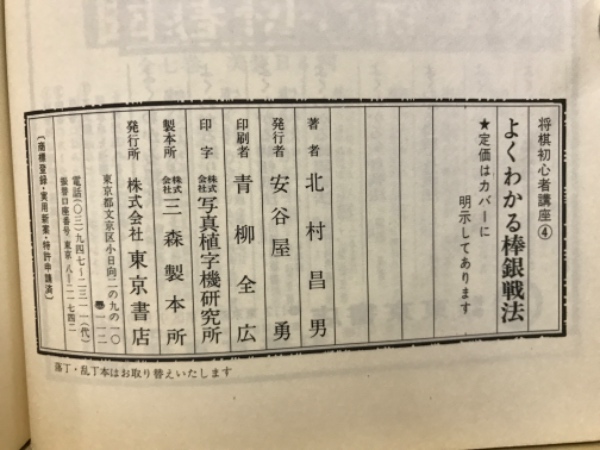 将棋初心者講座④
よくわかる棒銀戦法
★定価はカバーに
明示してあります
著者 北村昌男
発行者 安谷屋勇
印刷者 青柳全広
印字 株式会社 写真植字機研究所
製本所 株式会社 三森製本所
発行所 株式会社 東京書店
東京都文京区小日向二の九の一〇
〒一一二
電話(〇三)九四七-二三一一(代)
振替口座番号東京八-二一七四二
(商標登録・実用新案・特許申請済)
落丁・乱丁本はお取り替えいたします